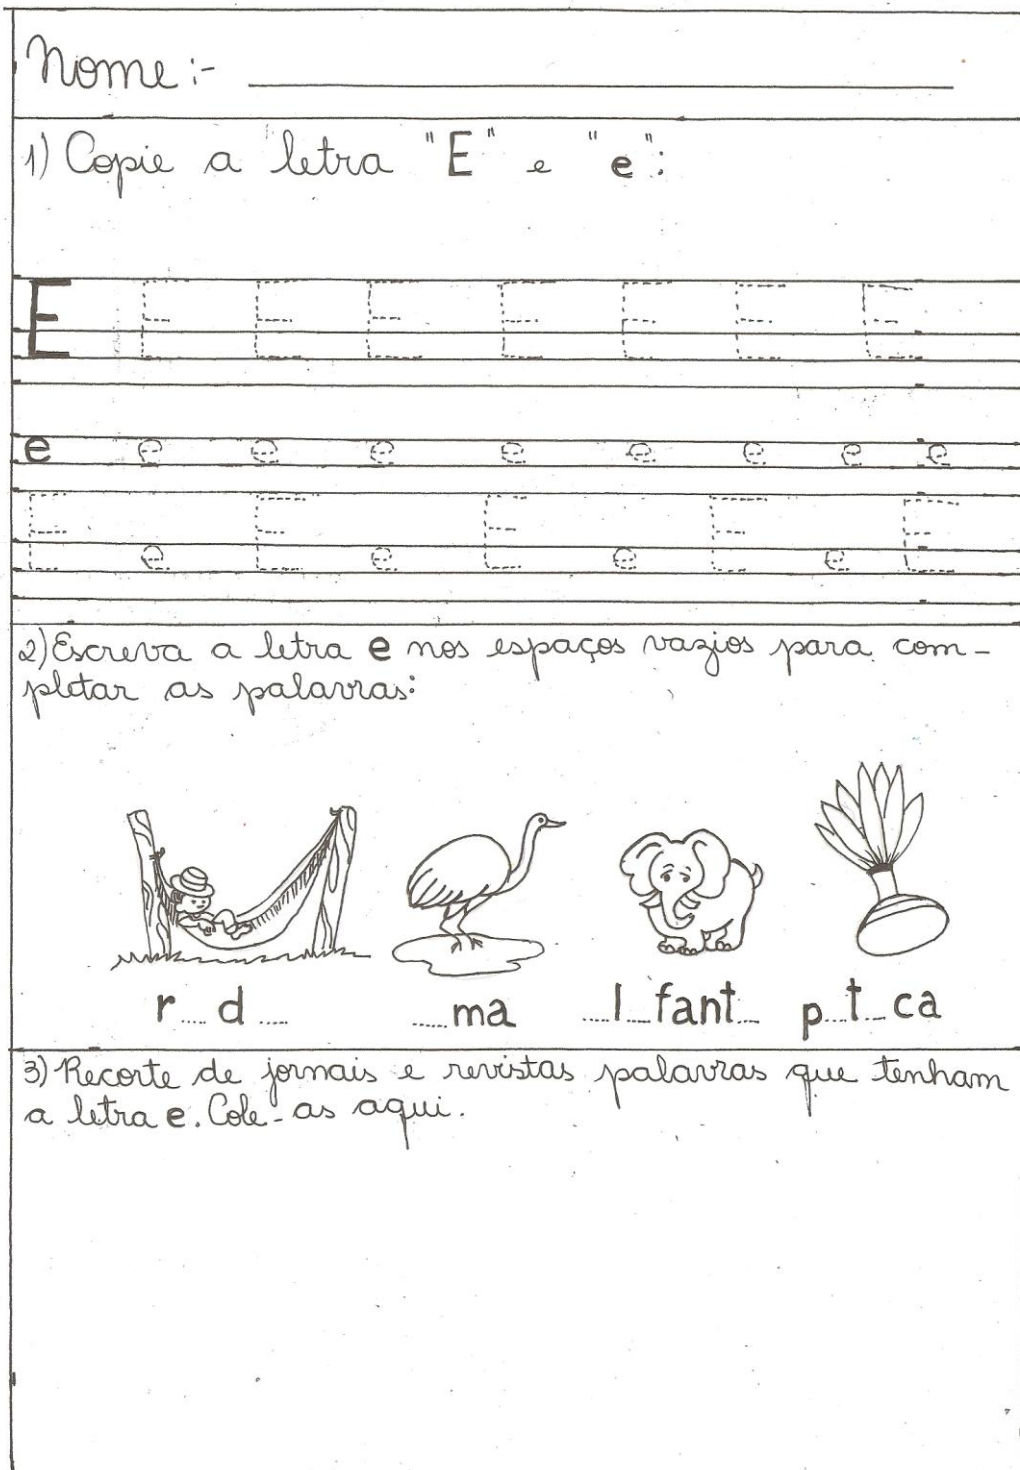 Nome:- ____________________
1) Copie a letra "E" e "e":
E E E E E E E E
e e e e e e e e e
E e E e E e E e E
2) Escreva a letra e nos espaços vazios para com-
pletar as palavras:
r....d.... ....ma ....l....fant.... p....t....ca
3) Recorte de jornais e revistas palavras que tenham
a letra e. Cole-as aqui.